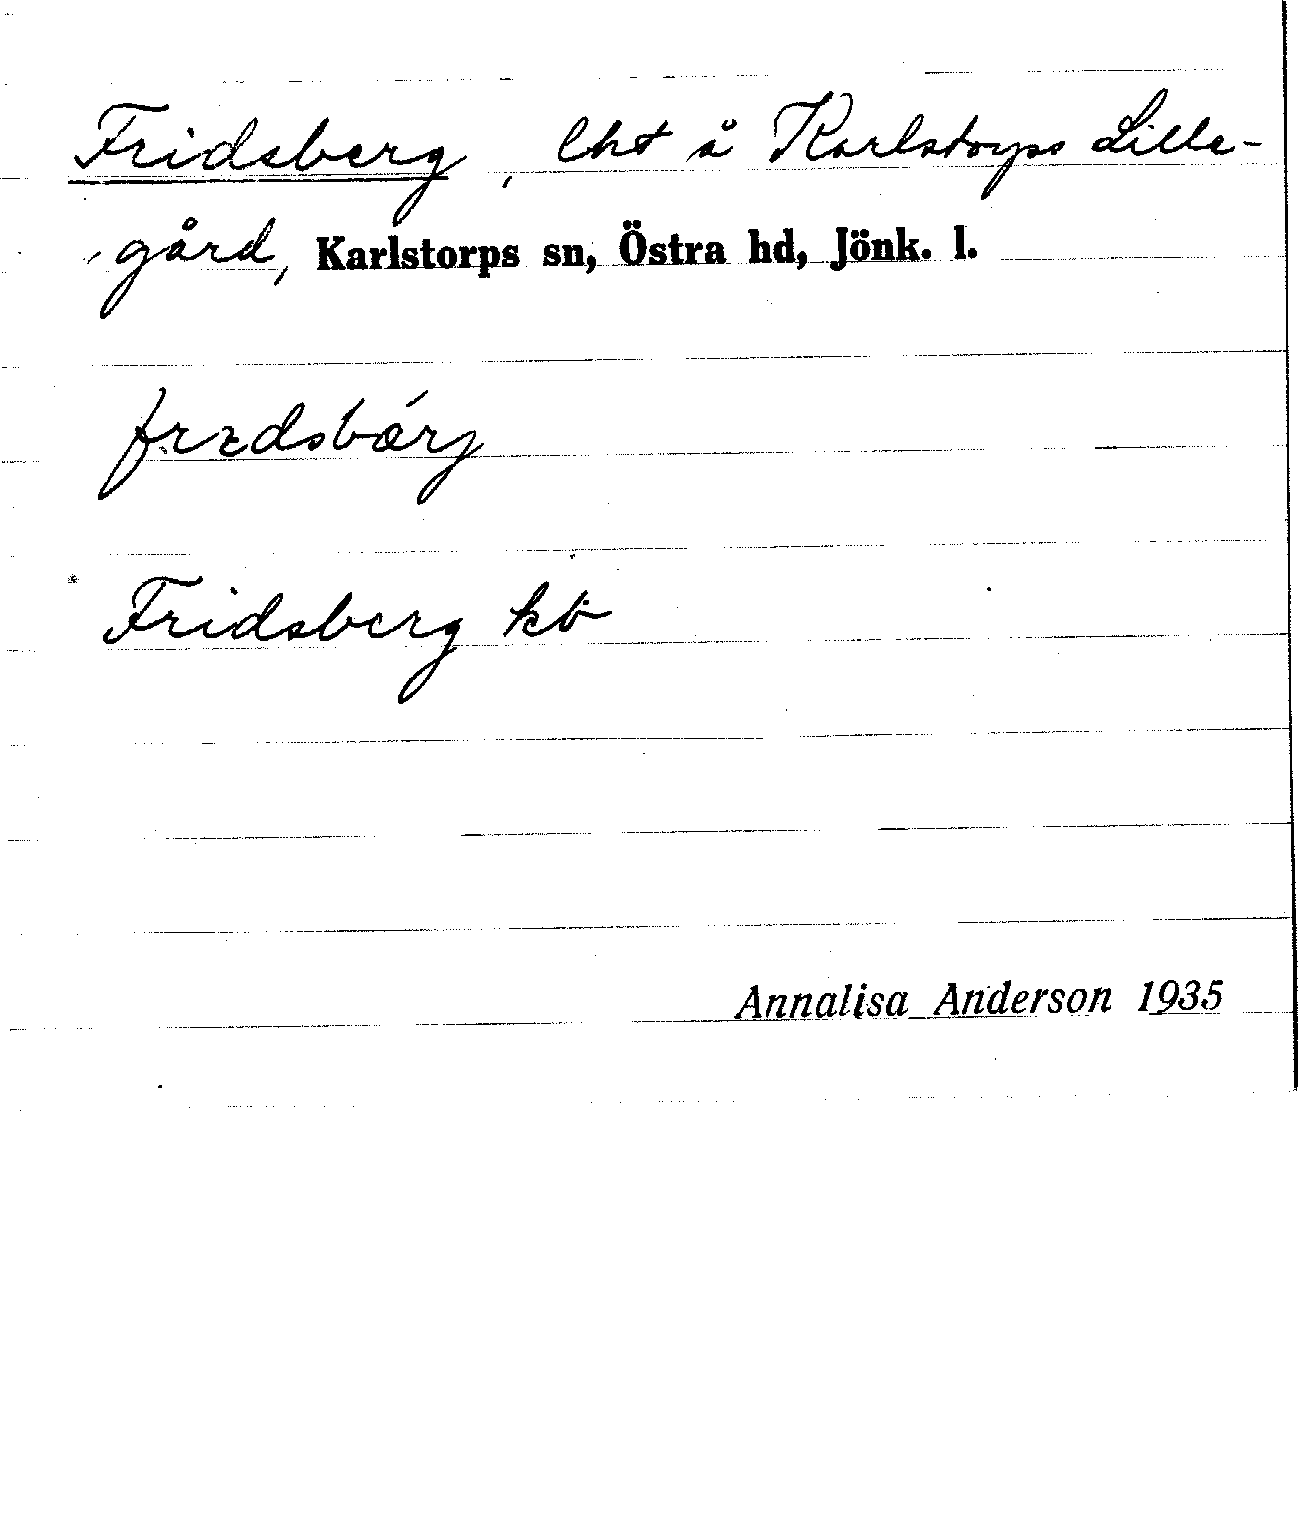 Fridsberg, lht å Karlstorps Lille-
gård, Karlstorps sn, Östra hd, Jönk. l.
Fridsberg kb
Annalisa Anderson 1935